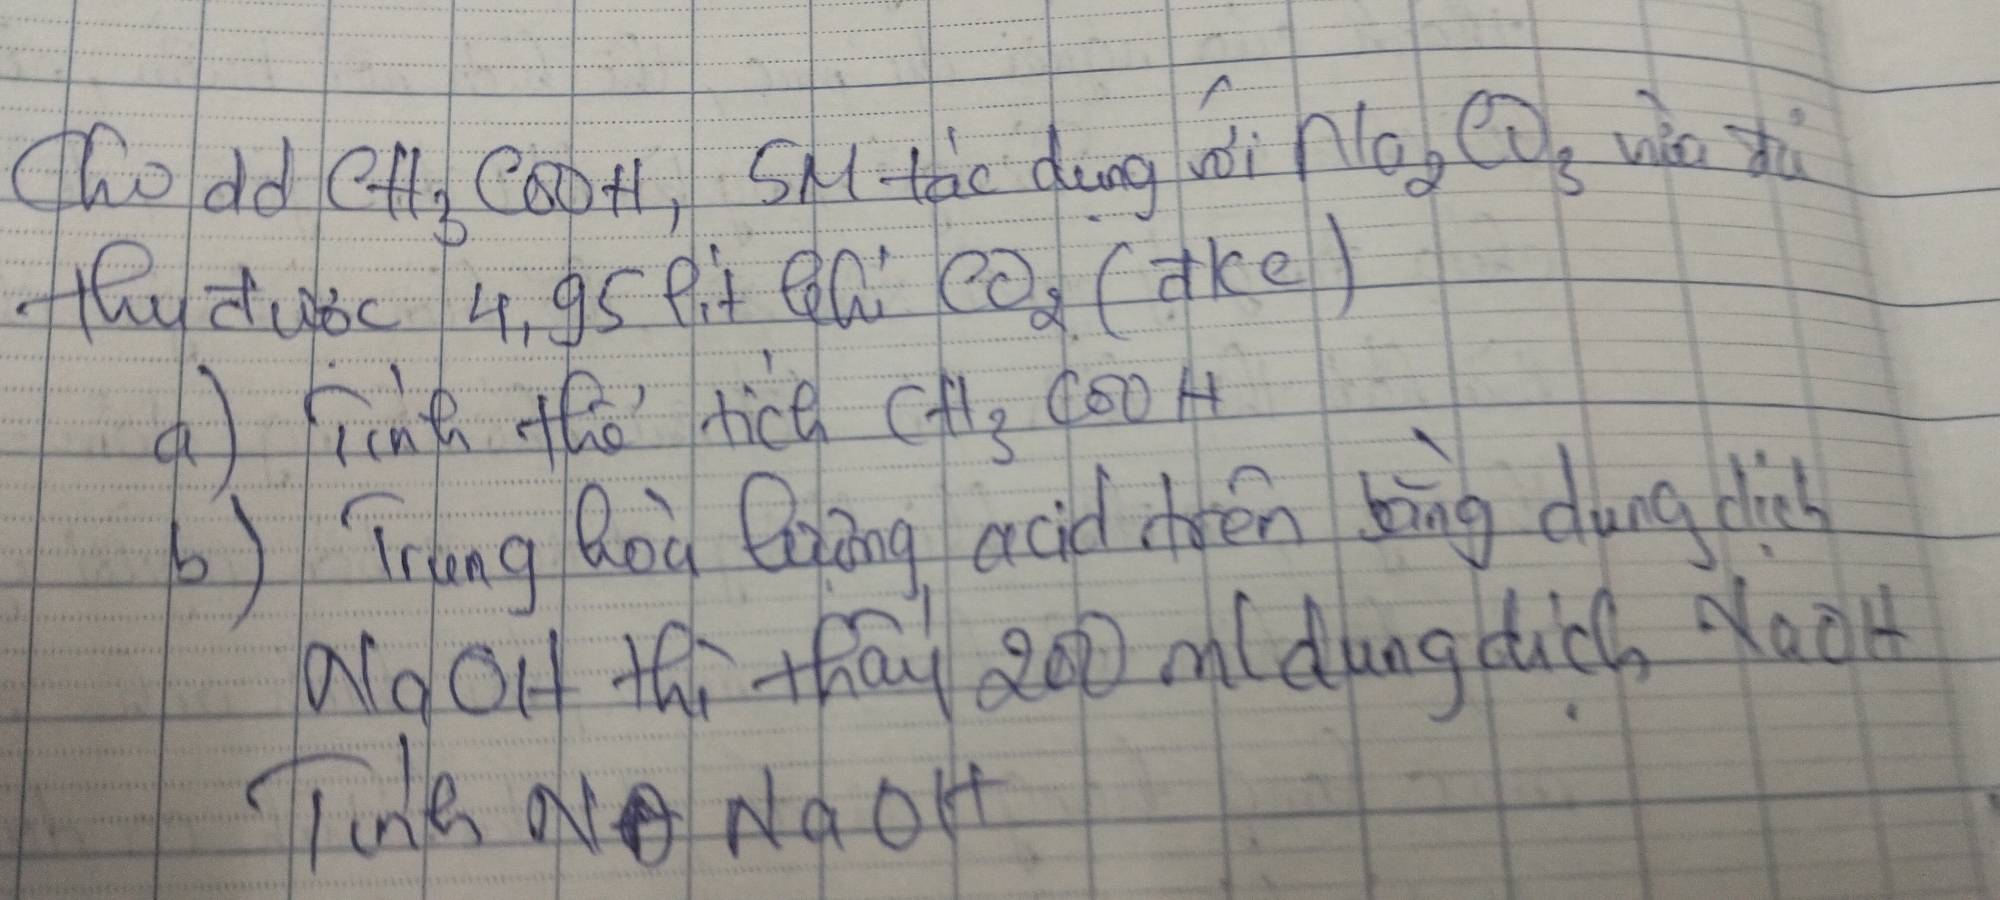 Cho dd CH3COOH, 5M tác dụng với Na2CO3 vừa đủ
thu được 4,95 lít khí CO2 (đkc)
a) Tính thể tích CH3COOH
b) Trung hoà lượng acid trên bằng dung dịch
NaOH thì thấy 200 ml dung dịch NaOH
Tính NĐ NaOH